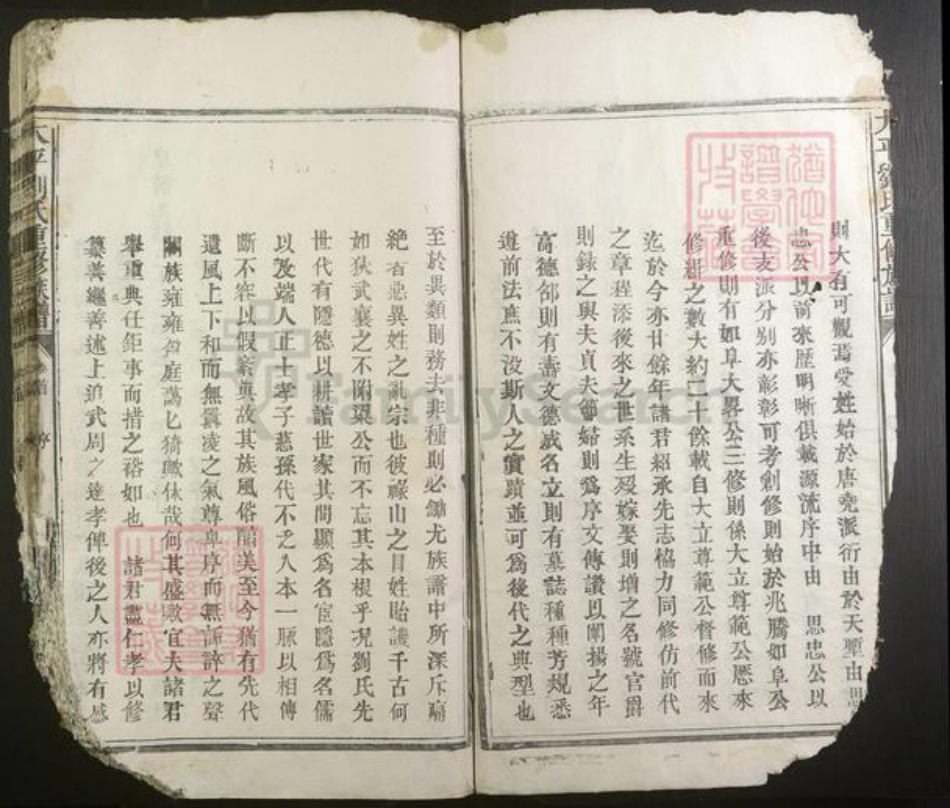 則大有可觀焉受姓始於唐堯派衍由於天由思
忠公以前來歷明晰俱載源流序中由 思忠公以
後支派分別亦彰彰可考創修則始於兆騰如阜公
重修則有如阜大畧公三修則係大立尊範公歷來
修緝之數大約二十餘載自大立尊範公督修而來
迄於今亦廿餘年諸君紹承先志恊力同修仿前代
之章程添後來之世系生歿嫁娶則增之名號官爵
則錄之與夫貞夫節婦則爲序文傳讚以闡揚之年
高德邵則有壽文德威名立則有墓誌種種芳規悉
遵前法庶不没斯人之實蹟並可爲後代之典型也
至於異類則務去非種則必鋤尤族譜中所深斥痛
絕者惡異姓之亂宗也彼祿山之冒姓貽譏千古何
如狄武襄之不附梁公而不忘其本根乎况劉氏先
世代有隱德以耕讀世家其間顯爲名宦隱爲名儒
以及端人正士孝子慈孫代不乏人本一脈以相傳
斷不容以假紊眞故其族風俗醇美至今猶有先代
遺風上下和而無囂凌之氣尊卑序而無訴訐之聲
闔族雍雍 庭藹匕猗歟休哉何其盛歟宜夫諸君
舉重典任鉅事而措之裕如也 諸君盡仁孝以修
纂善繼善述上追武周之達孝俾後之人亦將有感
太平劉氏重修族譜
卷首
序
太平劉氏重修族譜
猶他家
譜學會
收藏
FamilySearch